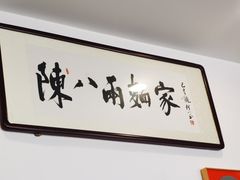 陳八兩麵家